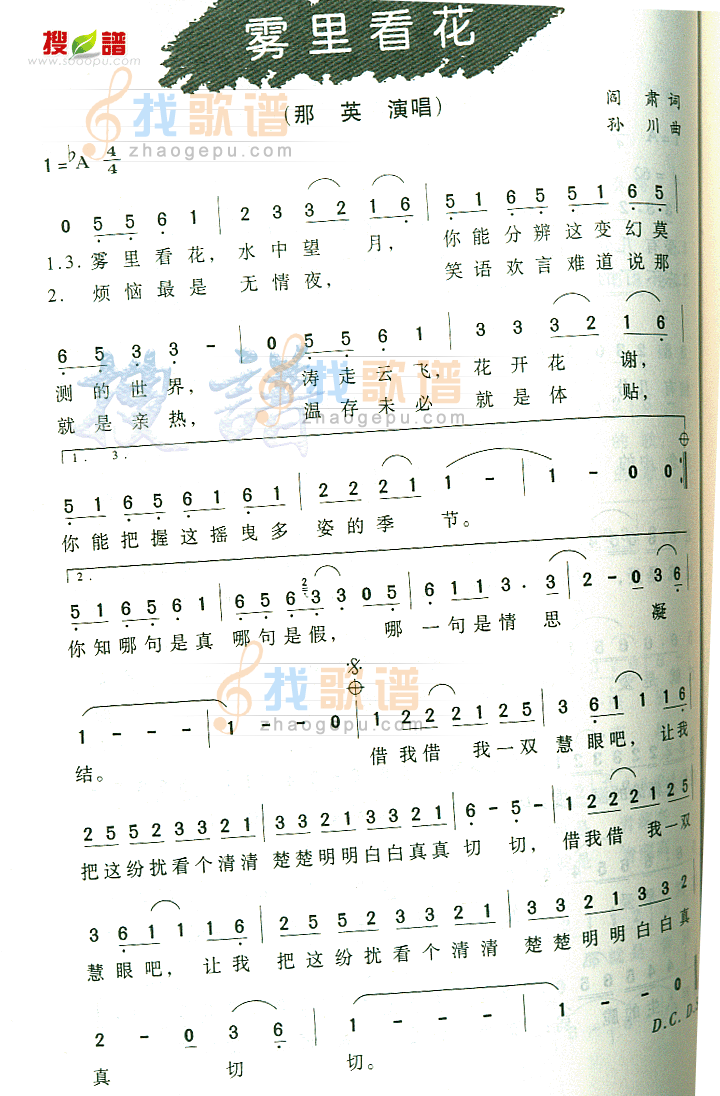 搜谱
www.sooopu.com
雾里看花
(那 英 演唱)
阎 肃 词
孙 川 曲
找歌谱
zhaogepu.com
1=♭A 4/4
0 5 5 6 1 | 2 3 3 2 1 6 | 5 1 6 5 5 1 6 5
1.3. 雾里看花, 水中望 月, 你能分辨这变幻莫
2. 烦恼最是 无情夜, 笑语欢言难道说那
6 5 3 3 - | 0 5 5 6 1 | 3 3 3 2 1 6
测的世界, 涛走云飞, 花开花 谢,
就是亲热, 温存未必 就是体 贴,
搜 谱
找歌谱
zhaogepu.com
1. 3.
5 1 6 5 6 1 6 1 | 2 2 2 2 1 1 - | 1 - 0 0
你能把握这摇曳多 姿的季 节。
2.
5 1 6 5 6 1 | 6 5 6 2 3 3 0 5 | 6 1 1 3 · 3 | 2 - 0 3 6
你知哪句是真 哪句是假, 哪 一句是情 思 凝
找歌谱
zhaogepu.com
1 - - - | 1 - - 0 | 1 2 2 2 2 1 2 5 | 3 6 1 1 1 6
结。 借我借 我一双 慧眼吧, 让我
2 5 5 2 3 3 2 1 | 3 3 2 1 3 3 2 2 | 6 - 5 - | 1 2 2 2 2 1 2 5
把这纷扰看个清清 楚楚明明白白真真 切 切, 借我借 我一双
3 6 1 1 1 6 | 2 5 5 2 3 3 2 1 | 3 3 2 1 3 3 2
慧眼吧, 让我 把这纷扰看个清清 楚楚明明白白真
2 - 0 3 6 | 1 - - - | 1 - - 0
真 切 切。
D.C. D.S
找歌谱
zhaogepu.com